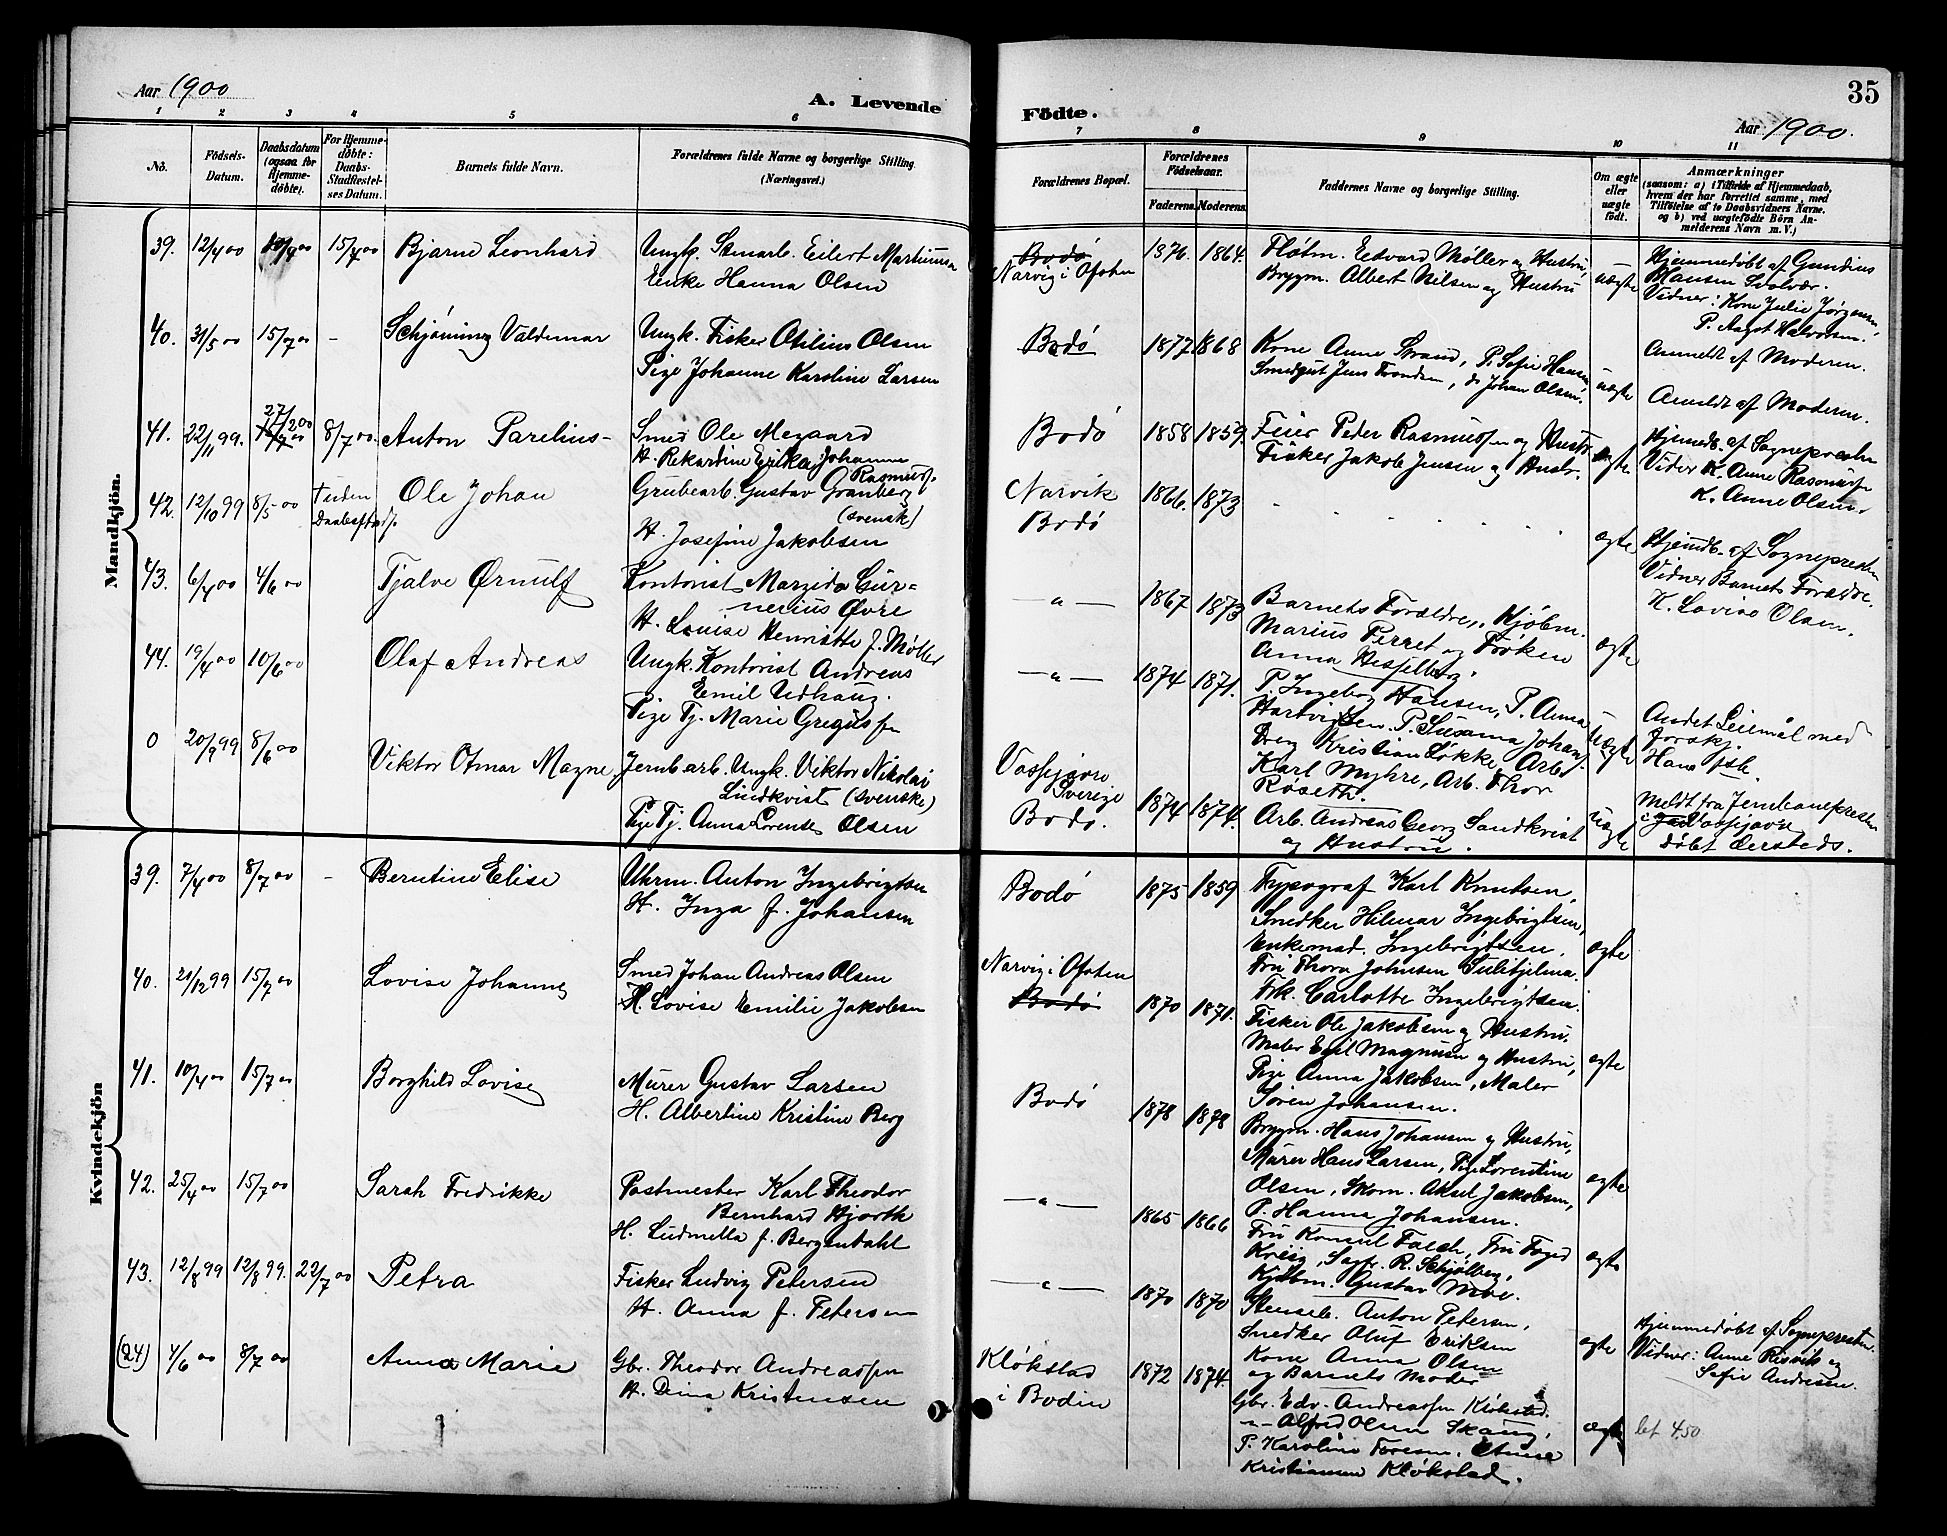 Aar 1900
A. Levende
Födte.
35
Aar 1900.
1 2 3 4 5 6 7 8 9 10 11
No.
Födsels-Datum.
Daabsdatum (ogsaa for Hjemmedöbte).
For Hjemmedöbte: Daabs-Stadfæstelses Datum.
Barnets fulde Navn.
Forældrenes fulde Navne og borgerlige Stilling. (Næringsvei.)
Forældrenes Bopæl.
Forældrenes Födselsaar.
Faderens.
Moderens.
Faddernes Navne og borgerlige Stilling.
Om ægte eller uægte födt.
Anmærkninger
(saasom: a) i Tilfælde af Hjemmedaab, hvem der har forrettet samme, med Tilföielse af to Daabsvidners Navne, og b) ved uægtefödte Börn Anmelderens Navn m. V.)
Mandkjön.
39. 12/4 00 15/4 00 Bjarne Leonhard
Ungk. Stenarb. Eilert Martinusen
Enke Hanna Olsen
Bodø
Narvig i Ofoten
1876. 1864.
Fløtm. Edvard Møller og Hustru,
Brygm. Albert Nilsen og Hustru
uægte
Hjemmedøbt af Gundius
Hansen Svolvær.
Vidner: Kone Julie Jørgensen,
P. Aagot Halvorsen.
40. 31/5 00 15/7 00 - Schjøning Valdemar
Ungk. Fisker Otilius Olsen
Pige Johanne Karoline Larsen
Bodø
1877. 1868
Kone Anne Strand, P. Sofie Hansen,
Smedgut Jens Trondsen, do Johan Olsen.
uægte
Anmeldt af Moderen.
Anmeldt af Moderen.
41. 22/11 99. 27/2 00 8/7 00. Anton Parelius
Smed Ole Megaard
H. Rekardine Erika Johanne
Rasmuss.
Bodø
1858 1859.
Feier Peder Rasmussen og Hustr.
Fisker Jakob Jensen og Hustr.
ægte
Hjemmedb. af Sognepresten
Vidner K. Anne Rasmuss.
K. Anne Olsen.
42. 12/10 99 8/5 00 Uden Daabsstadf. Ole Johan
Grubearb. Gustav Granberg
(svensk)
H. Josefine Jakobsen
Narvik
Bodø
1866. 1873
ægte
Hjemdb. af Sognepresten
Vidner Barnets Forældre.
K. Lovise Olsen.
43. 6/4 00 4/6 00 Tjalve Ørnulf
Kontorist Margido Gur=
nerius Øvre
H. Louise Henriette f. Møller
— " —
1867 1873
Barnets Forældre, Kjøbm.
Marius Perret og Frøken
Anna Hesselberg.
ægte
44. 19/4 00 10/6 00 Olaf Andreas
Ungk. Kontorist Andreas
Emil Udhaug.
Pige Tj. Marie Gregussen
— " —
1874 1871.
P. Ingeborg Hansen, P. Anna
Hartvigsen. P. Susanna Johans.
Dreng Kristian Løkke, Arb.
Karl Myhre, Arb. Thor
Røseth.
uægte
Andet Leiemål med
forskj.
Hans 1ste.
0 20/9 99 8/6 00 Viktor Otmar Magne
Jernbarb. Ungk. Viktor Nikolai
Lindkvist (svenske)
Pige Tj. Anna Lorentse Olsen
Vassijaure
Sverige
Bodø.
1874 1874.
Arb. Andreas Georg Sandkvist
og Hustru.
uægte
Meldt fra Jernbanepresten
i Vassijaure
døbt dersteds.
Kvindekjön
39. 7/4 00 8/7 00 - Berntine Elise
Uhrm. Anton Ingebrigtsen
H. Inga f. Johansen
Bodø
1875 1859
Typograf Karl Knutsen,
Snedker Hilmar Ingebrigtsen,
Enkemad. Ingebrigtsen,
Fru Thora Johnsen Sulitjelma.
Frk. Carlotte Ingebrigtsen.
ægte
40. 21/12 99 15/7 00 Lovise Johanne
Smed Johan Andreas Olsen
H. Lovise Emilie Jakobsen
Narvig i Ofoten
Bodø
1870 1871.
Fisker Ole Jakobsen og Hustru.
Maler Emil Magnusen og Hustru,
Pige Anna Jakobsen, Maler
Søren Johansen.
ægte
41. 10/4 00 15/7 00 Borghild Lovise
Murer Gustav Larsen
H. Albertine Kristine Berg
Bodø
1878 1878
Brygm. Hans Johansen og Hustru,
Murer Hans Larsen, Pige Lorentine
Olsen, Skom. Aksel Jakobsen,
P. Hanna Johansen.
ægte
42. 25/4 00 15/7 00 Sarah Fredrikke
Postmester Karl Theodor
Bernhard Hjorth
H. Ludmella f. Bergendahl
— " —
1865 1866
Fru Konsul Falch, Fru Foged
Krieg, Sagfr. R. Schjølberg,
Kjøbm. Gustav Moe.
ægte
43. 12/8 99 12/8 99. 22/7 00 Petra
Fisker Ludvig Petersen
H. Anna f. Petersen
— " —
1870 1870
Stenarb. Anton Petersen,
Snedker Oluf Eriksen
Kone Anna Olsen
og Barnets Moder
ægte
Hjemmedøbt af Sognepresten.
Vidner: Anne Risvik og
Sofie Andresen.
(24) 4/6 00 8/7 00 Anna Marie
Gbr. Theodor Andreassen
H. Dina Kristensen
Kløkstad
i Bodin
1872 1874.
Gbr. Edv. Andreassen Kløkstad.
— " — Alfred Olsen Skaug,
P. Karoline Toresen. Anne
Kristiansen Kløkstad.
ægte
bet 4.50